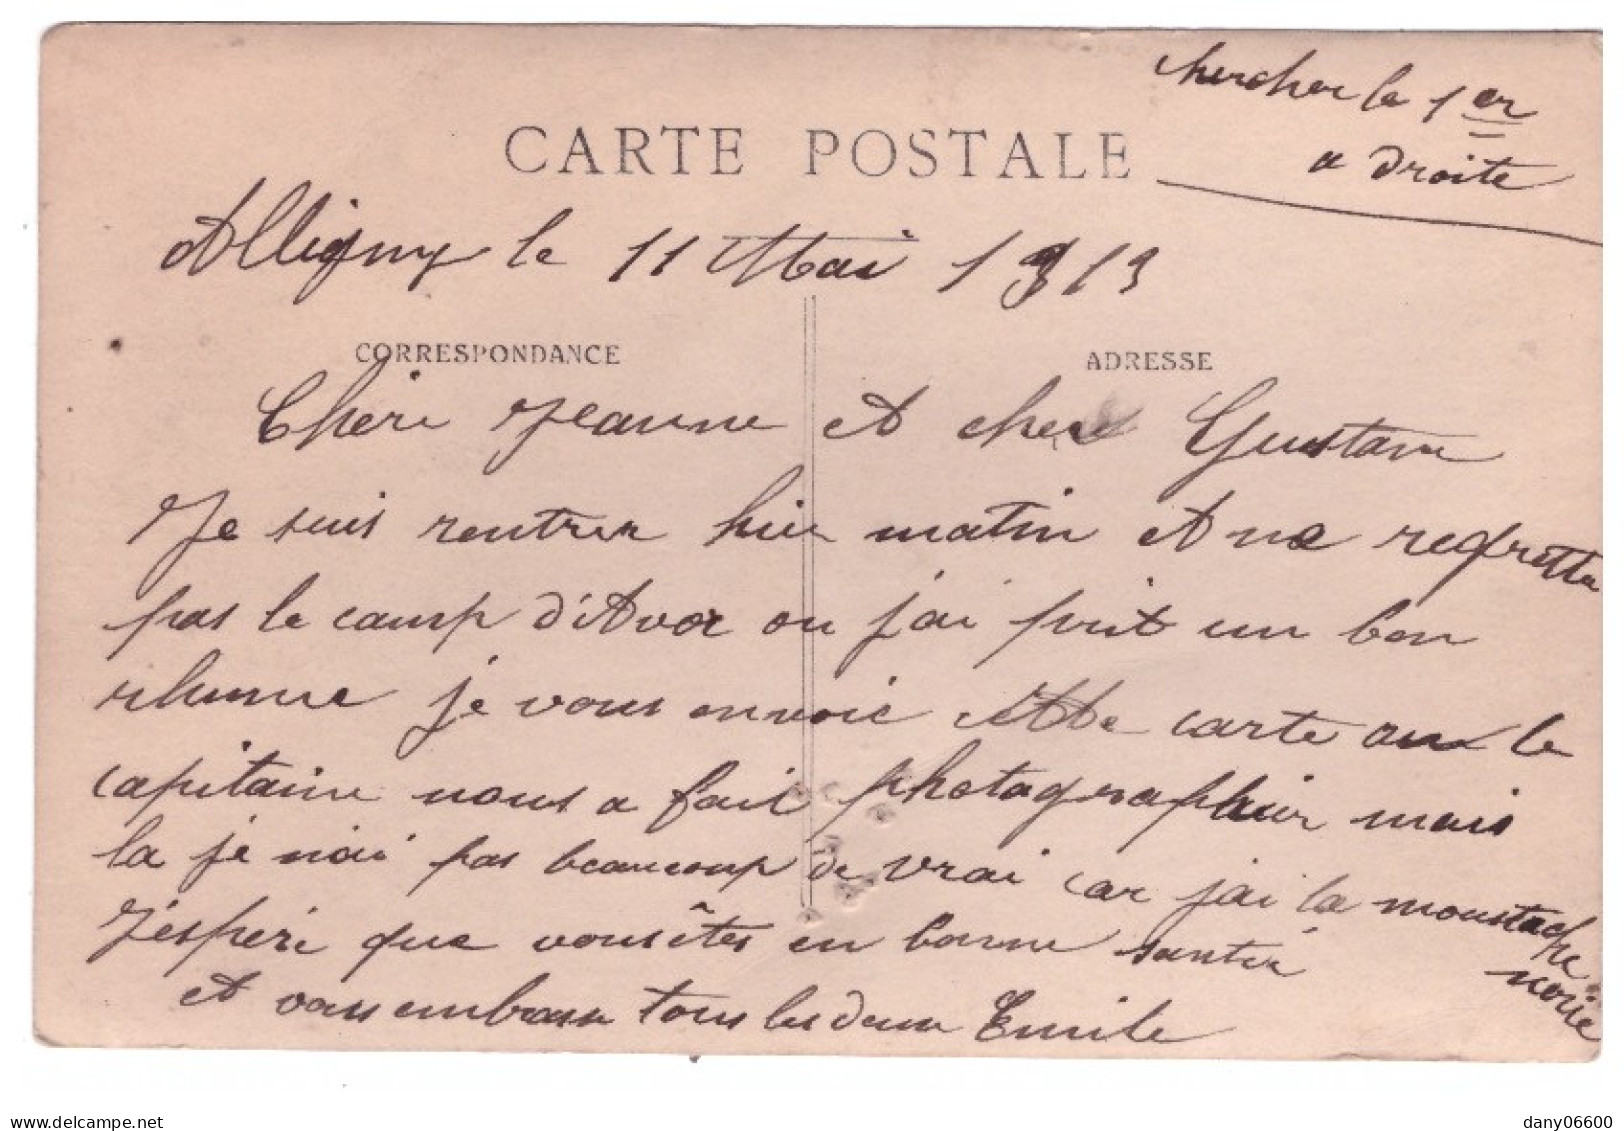 chercher le 1er
a droite
CARTE POSTALE
Alligny le 11 Mai 1913
CORRESPONDANCE
ADRESSE
Chéri Jeanne et cher Gustave
Je suis rentrer hier matin et ne regrette
pas le camp d'Avor ou j'ai prit un bon
rhume je vous envoie cette carte ou le
capitaine nous a fait photographier mais
la je n'ai pas beaucoup de vrai car j'ai la moustache
noire
J'éspère que vous êtes en bonne santé
et vous embrasse tous les deux Emile
delcampe.net
dany06600